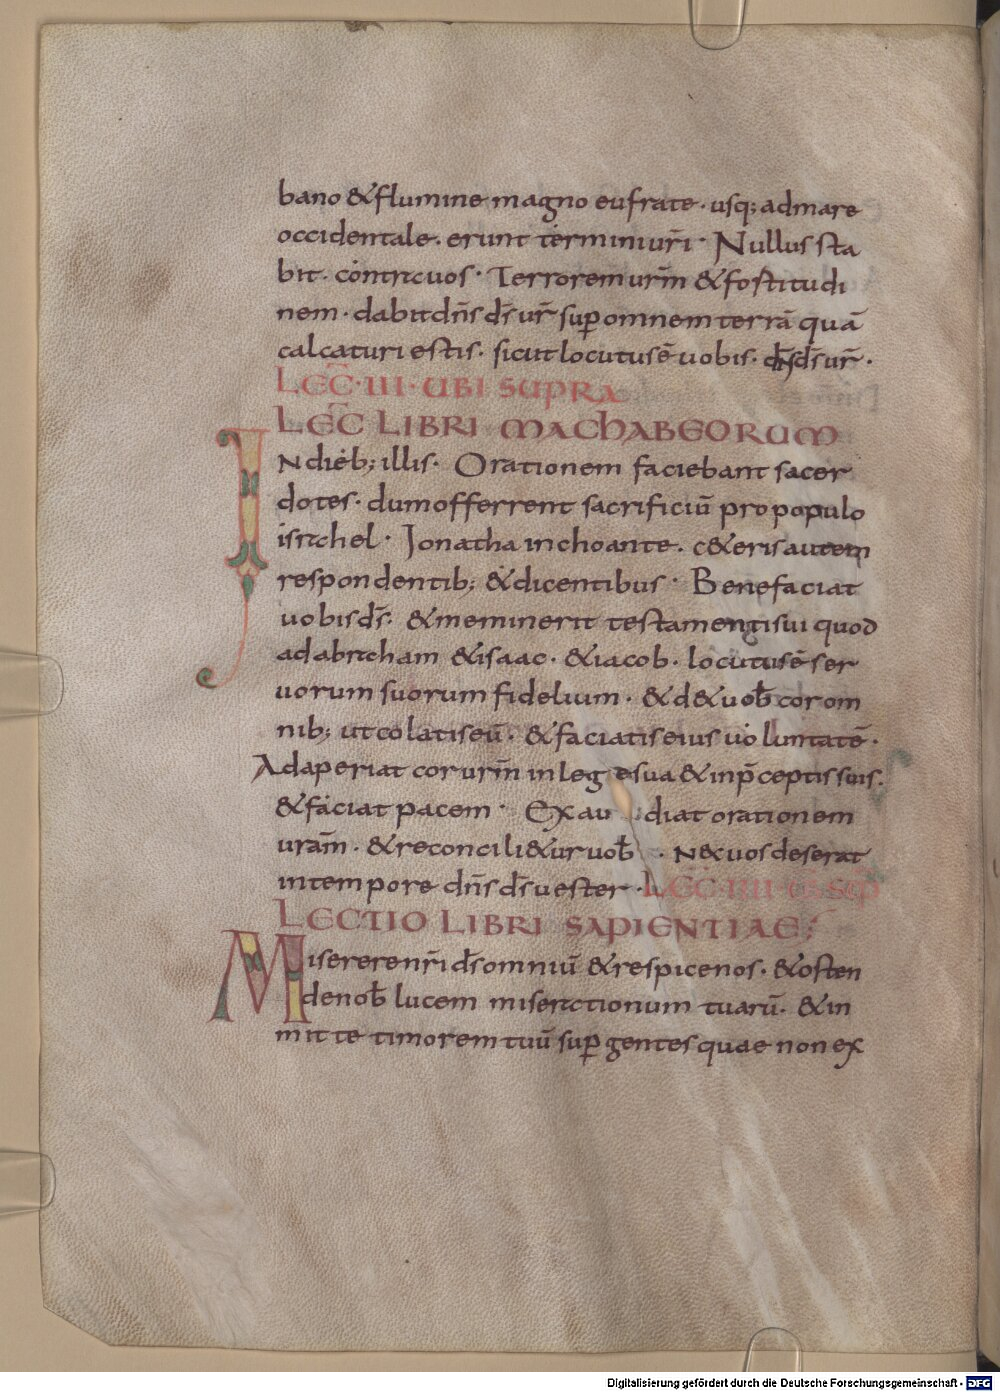 bano & flumine magno eufrate · usq; ad mare
occidentale · erunt termini ur̄i · Nullus sta
bit · contra uos · Terrorem ur̄m & fortitudi
nem · dabit dn̄s ds̄ ur̄ sup omnem terrā quā
calcaturi estis · sicut locutus ē uobis · dn̄s ds̄ ur̄ ·
LEC̄ · III · UBI SUPRA
LEC̄ LIBRI MACHABEORUM
IN dieb; illis · Orationem faciebant sacer
dotes · dum offerrent sacrificiū pro populo
israhel · Ionatha inchoante · c&eris autem
respondentib; & dicentibus · Benefaciat
uobis ds̄ · & meminerit testamenti sui quod
ad abraham & isaac · & iacob · locutus ē ser
uorum suorum fidelium · & d& uob̄ cor om
nib; ut colatis eū · & faciatis eius uoluntatē ·
Adaperiat cor ur̄m in lege sua & in p̄ceptis suis ·
& faciat pacem · Exaudiat orationem
uram̄ · & reconcili&ur uob̄ · Nec uos deserat
in tempore dn̄s ds̄ uester · LEC̄ · IIII ·
LECTIO LIBRI SAPIENTIAE;
Miserere nr̄i ds̄ omniū & respice nos · & osten
de nob̄ lucem miserationum tuarū · & in
mitte timorem tuū sup gentes quae non ex
Digitalisierung gefördert durch die Deutsche Forschungsgemeinschaft - DFG